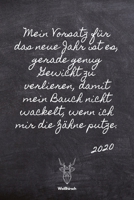 Mein Vorsatz für
das neue Jahr ist es,
gerade genug
Gewicht zu
verlieren, damit
mein Bauch nicht
wackelt, wenn ich
mir die Zähne putze.
2020